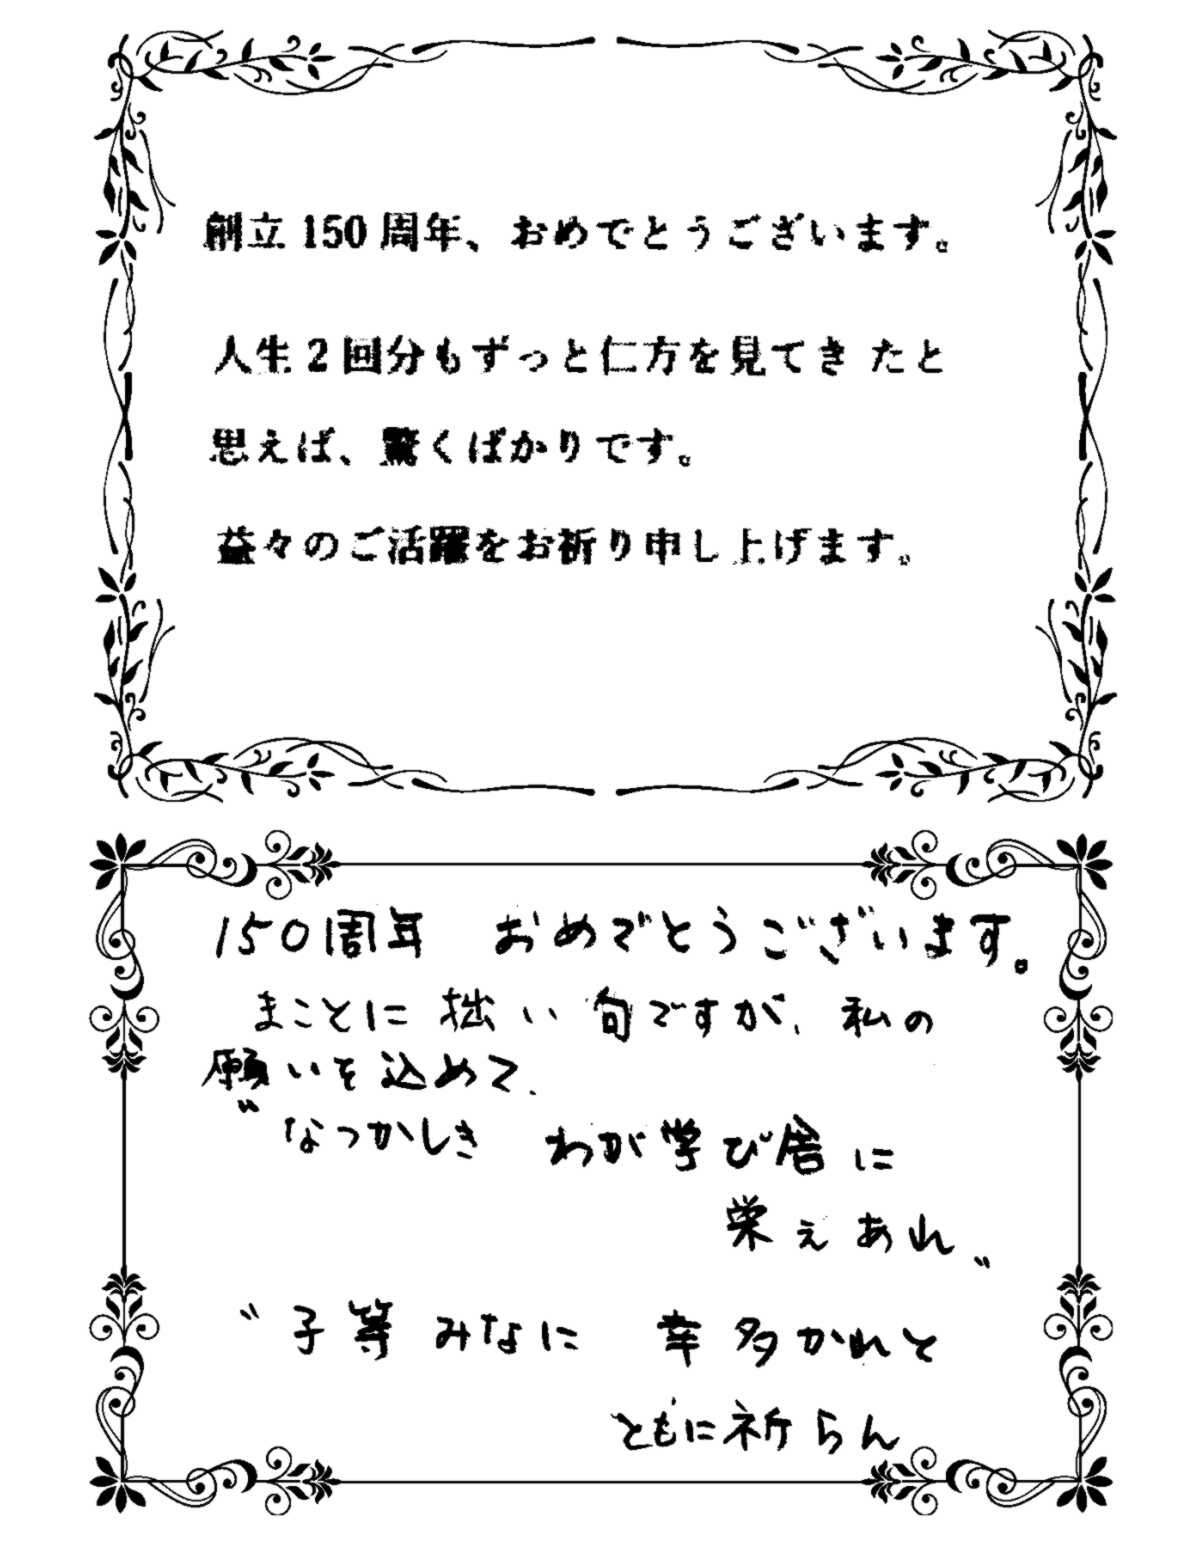 創立150周年、おめでとうございます。
人生2回分もずっと仁方を見てきたと
思えば、驚くばかりです。
益々のご活躍をお祈り申し上げます。
150周年 おめでとうございます。
まことに拙い句ですが、私の
願いを込めて、
〝なつかしき わが学び舎に
栄えあれ〟
〝子等みなに 幸多かれと
ともに祈らん